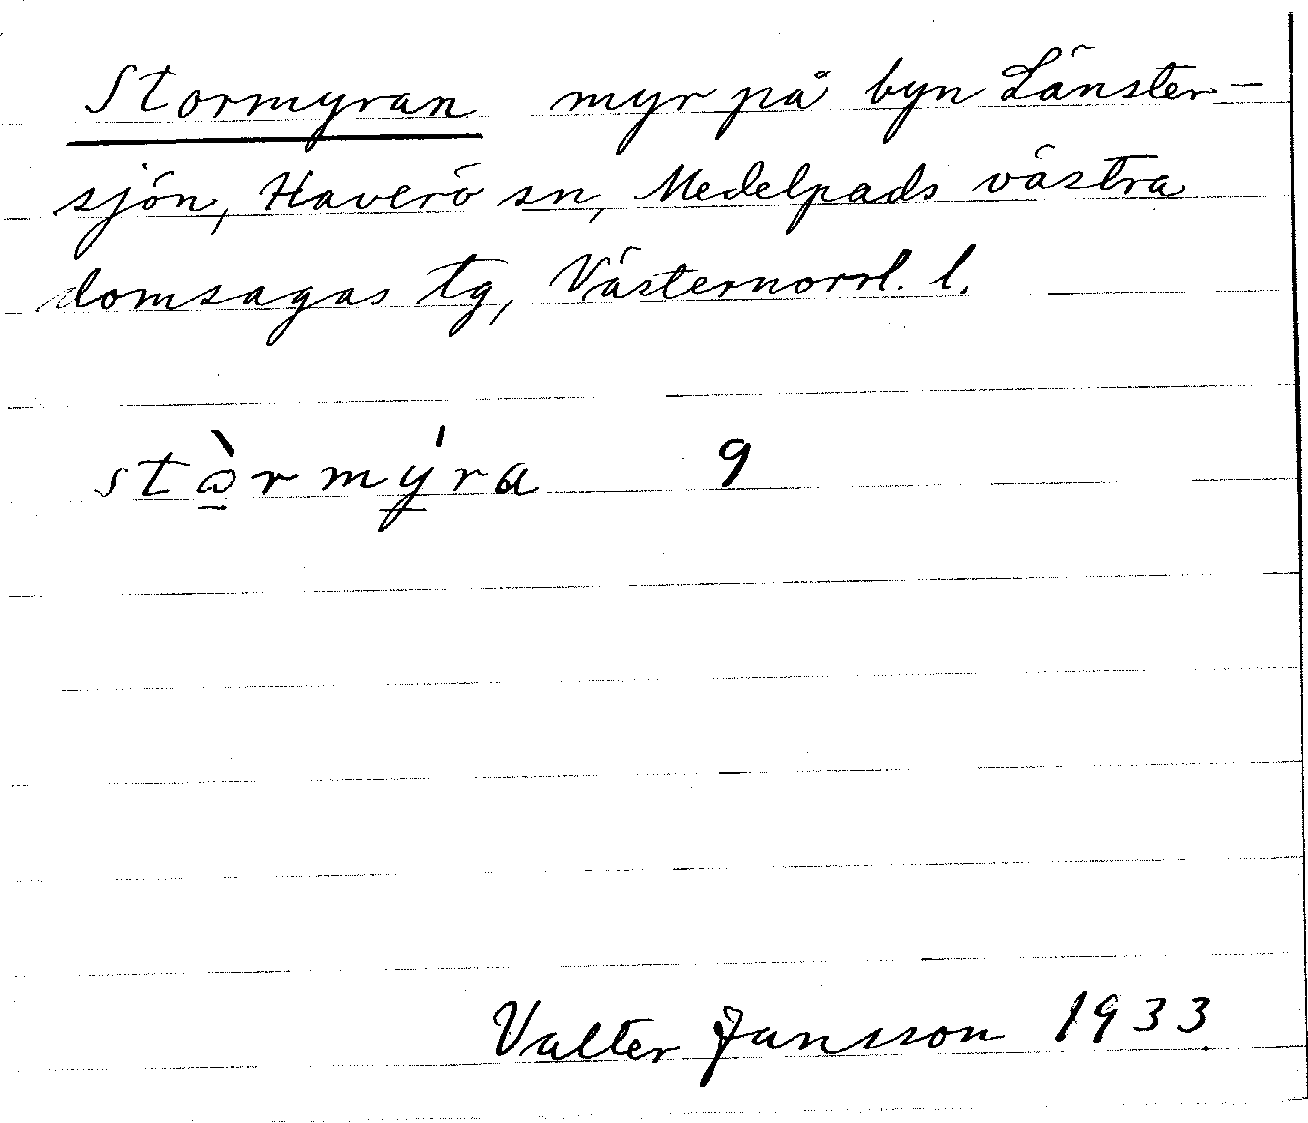 Stormyran myr på byn Länster-
sjön, Haverö sn, Medelpads västra
domsagas tg, Västernorrl. l.
stὼ̱rmý̱ra 9
Valter Jansson 1933.